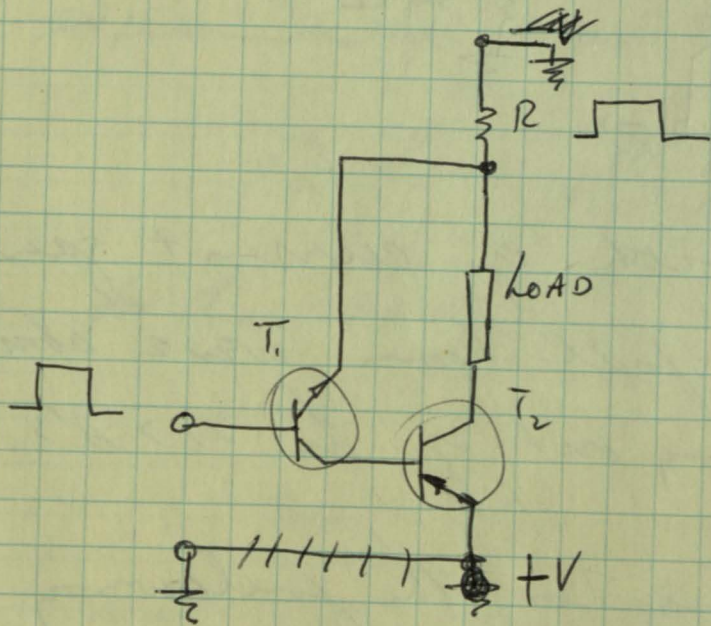 R
LOAD
T1
T2
+V